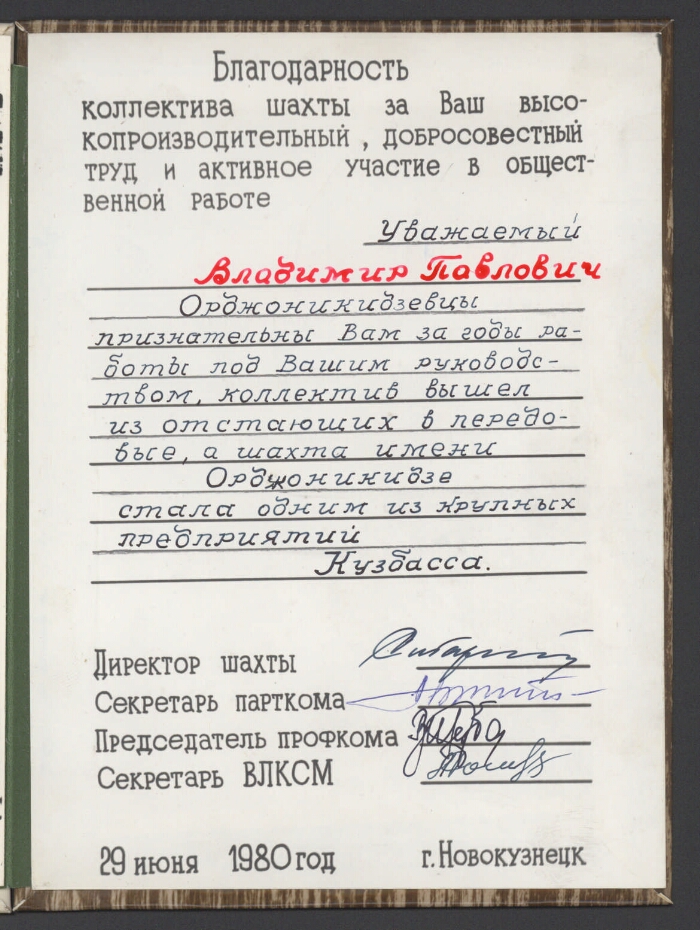 Благодарность
коллектива шахты за Ваш высо-
копроизводительный, добросовестный
труд и активное участие в общест-
венной работе
Уважаемый
Владимир Павлович
Орджоникидзевцы
признательны Вам за годы ра-
боты под Вашим руководс-
твом, коллектив вышел
из отстающих в передо-
вые, а шахта имени
Орджоникидзе
стала одним из крупных
предприятий
Кузбасса.
Директор шахты
Секретарь парткома
Председатель профкома
Секретарь ВЛКСМ
29 июня 1980 год г. Новокузнецк